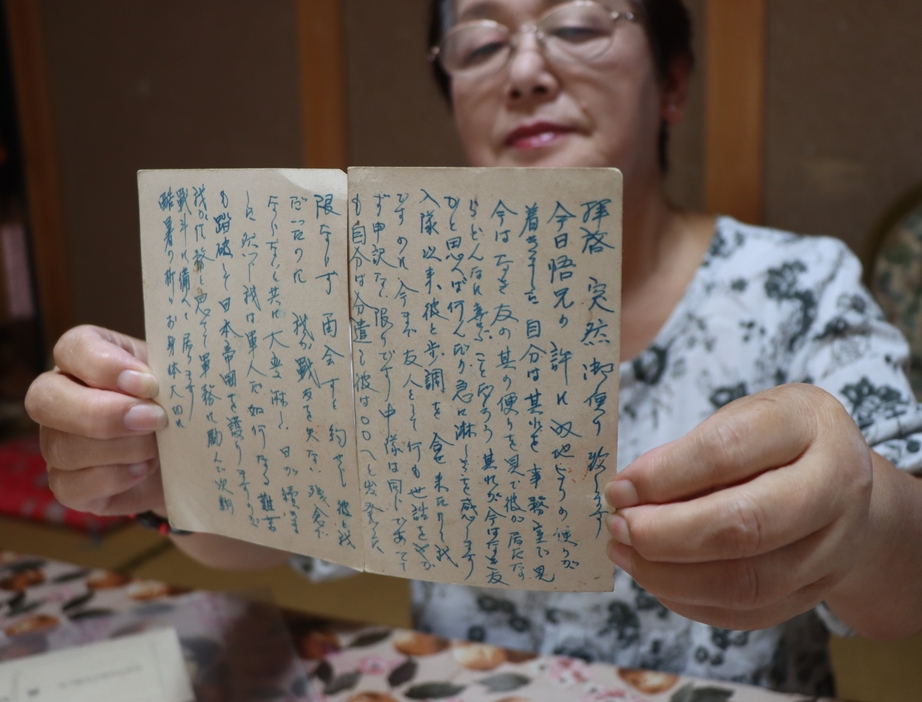 拝啓 突然御便り致します
今日悟兄の許に 地よりの便りが
着きました 自分は其れを事務室で見
今はなき友の其の便りを見て彼が居たな
らどんなに喜ぶことだらう 其れが今はなき友
かと思へば何んだか急に淋しさを感じます
入隊以来彼と歩調を合せ来たりし我
ですのに今まで友人として何も世話をせ
ず申訳なき限りです 中隊は同じであって
も自分は分遣して彼は〇〇へと出発した
限ならず再会すと約せし彼と我
だったのに 我が戦友を失ない残念で
ならなく共に大変淋しい日が続きま
した 然し我は軍人だ如何なる難苦
も踏破して日本帝国を護ります
我が任務と思って軍務に励んで次期
戦斗に備へて居ります
酷暑の折りお身体大切に